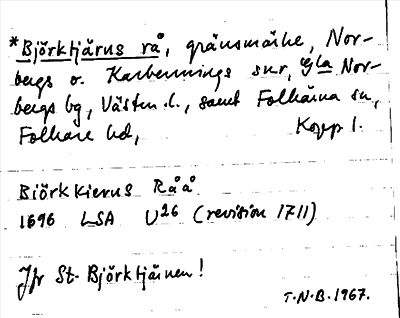 *Björktjärns rå, gränsmärke, Nor-
bergs o. Karbennings snr, Gla Nor-
bergs bg, Västm. l., samt Folkärna sn,
Folkare hd, Kopp l.
Biörkkierns Råå
1696 LSA U26 (revision 1711)
Jfr St. Björktjärnen!
T.N.B. 1967.